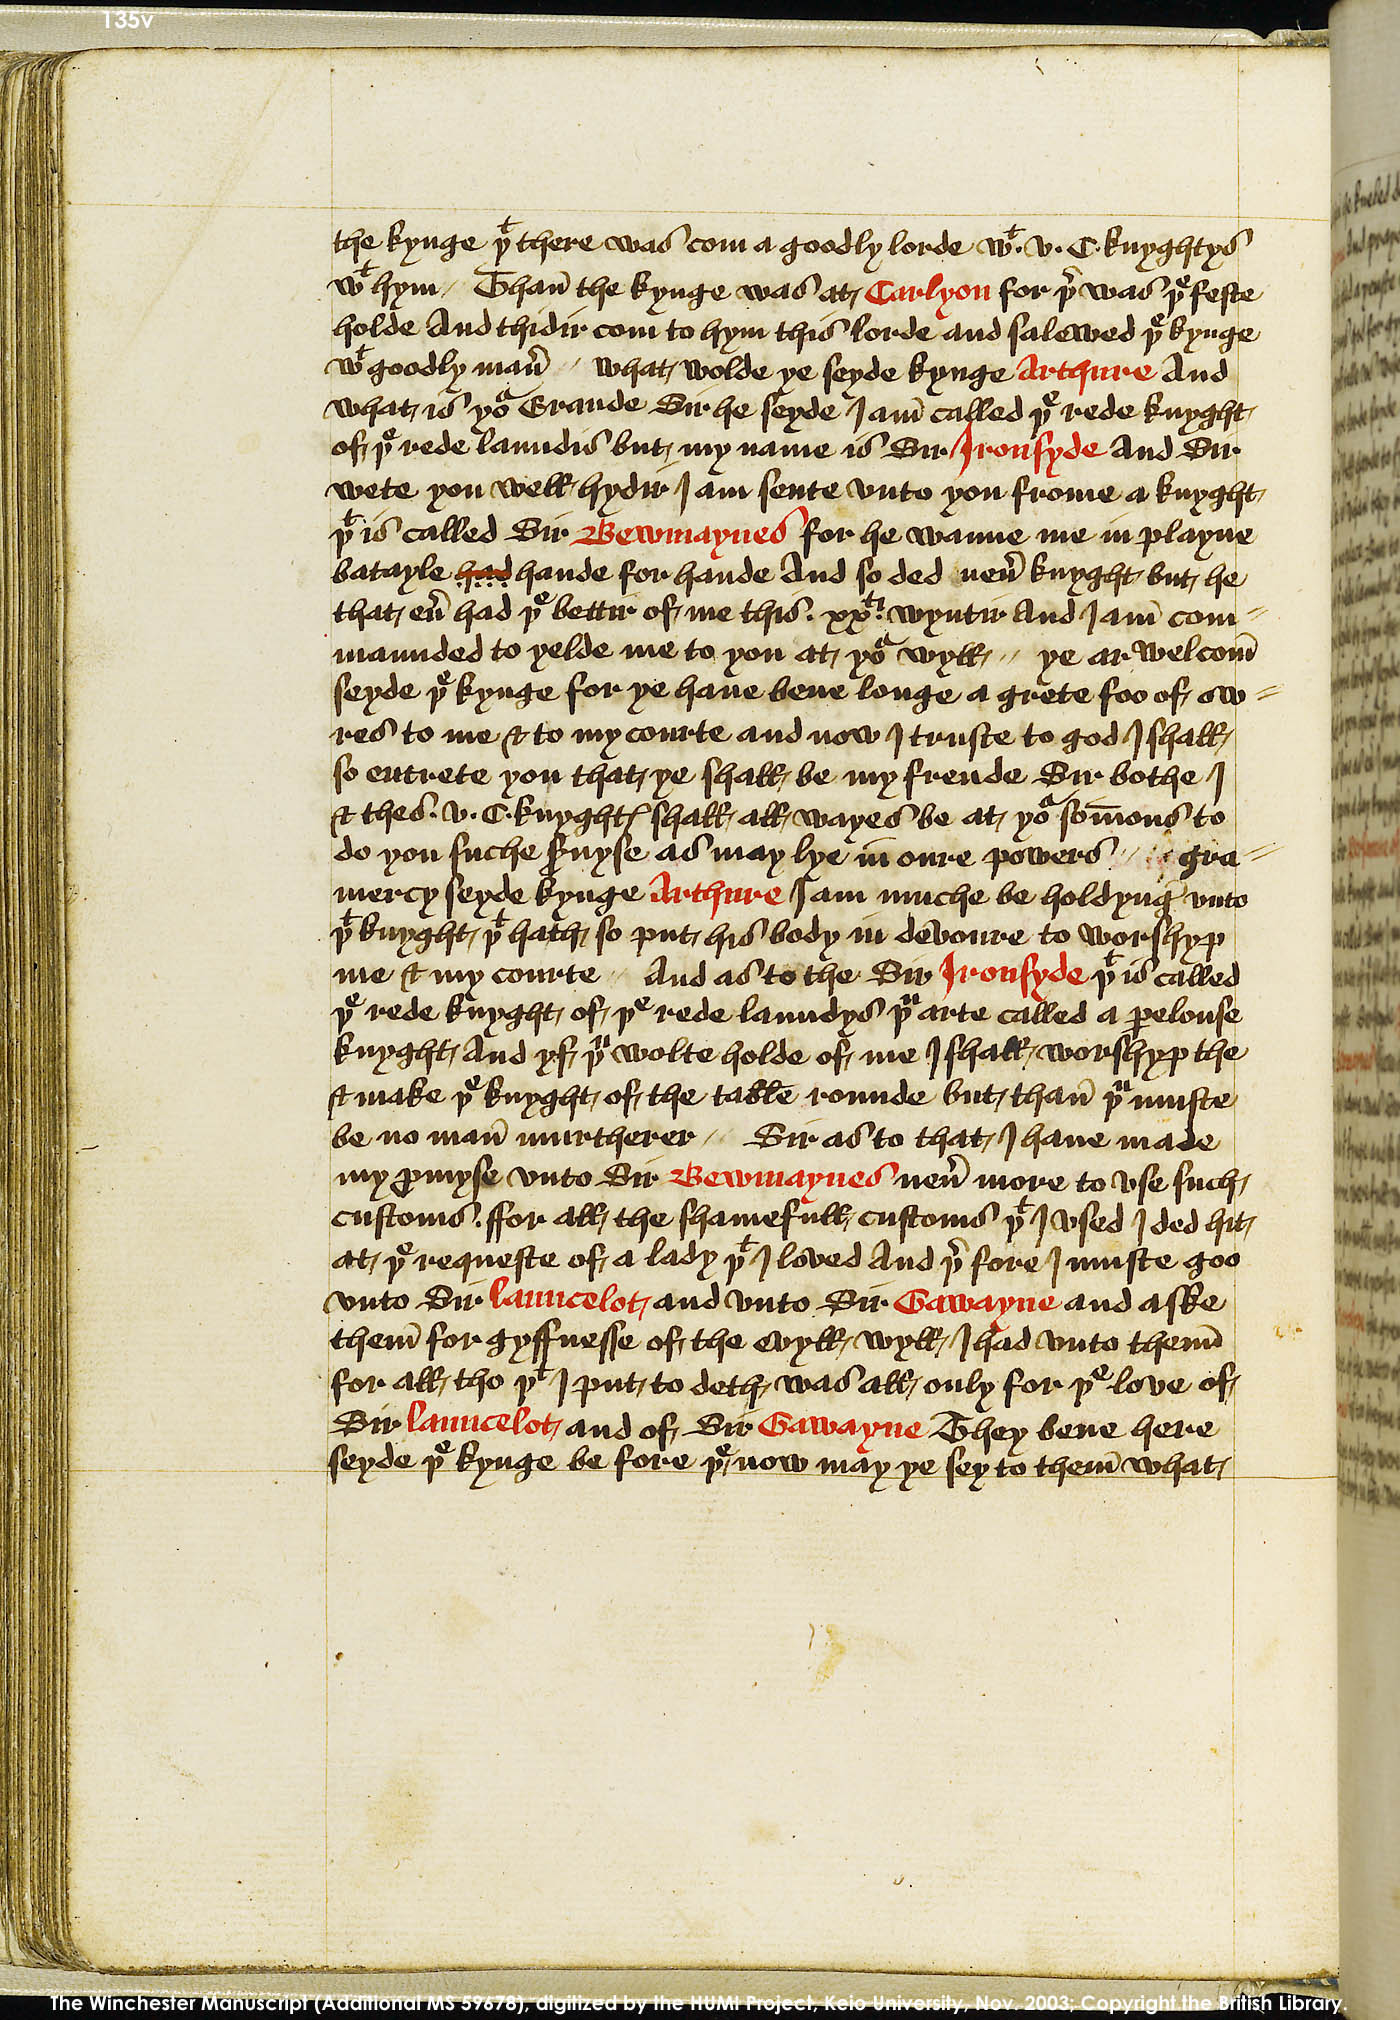 135v
the kynge þᵗ there was com a goodly lorde wᵗ. v. C. knyghtys
wᵗ hym // Than̄ the kynge was at Carlyon for þʳ was þᵉ feste
holde And thidir com to hym this lorde and salewed þᵉ kynge
wᵗ goodly man̄ // what wolde ye seyde kynge Arthure And
what is yoʳ Erande Sir he seyde I am̄ called þᵉ rede knyght
of þᵉ rede laundis but my name is Sir Ironsyde And Sir
wete you well hydir I am sente vnto you frome a knyght
þᵗ is called Sir Bewmaynes for he wanne me in playne
batayle had hande for hande And so ded neū knyght but he
that eū had þᵉ bettir of me this. xxᵗⁱ. wyntir And I am̄ com=
maunded to yelde me to you at yoʳ wyll // ye ar welcom̄
seyde þᵉ kynge for ye haue bene longe a grete foo of ow=
res to me & to my courte and now I truste to god I shall
so entrete you that ye shall be my frende Sir bothe I
& thes. v. C. knyghtꝭ shall all wayes be at yoʳ som̄ons to
do you suche ꝑuyse as may lye in oure powers // gra=
mercy seyde kynge Arthure I am muche be holdyng vnto
þᵗ knyght þᵗ hath so put his body in devoure to worshyp
me & my courte // And as to the Sir Ironsyde þᵗ is called
þᵉ rede knyght of þᵉ rede laundys þᵘ arte called a ꝑelouse
knyght And yf þᵘ wolte holde of me I shall worshyp the
& make þᵉ knyght of the table rounde but than̄ þᵘ muste
be no man̄ murtherer // Sir as to that I haue made
my ꝓmyse vnto Sir Bewmaynes neū more to vse such
customs. ffor all the shamefull customs þᵗ I vsed I ded hit
at þᵉ requeste of a lady þᵗ I loved And þʳ fore I muste goo
vnto Sir launcelot and vnto Sir Gawayne and aske
them̄ for gyffnesse of the evyll wyll I had vnto them̄
for all tho þᵗ I put to deth was all only for þᵉ love of
Sir launcelot and of Sir Gawayne They bene here
seyde þᵉ kynge be fore þᵉ now may ye sey to them̄ what
The Winchester Manuscript (Additional MS 59678), digitized by the HUMI Project, Keio University, Nov. 2003; Copyright the British Library.